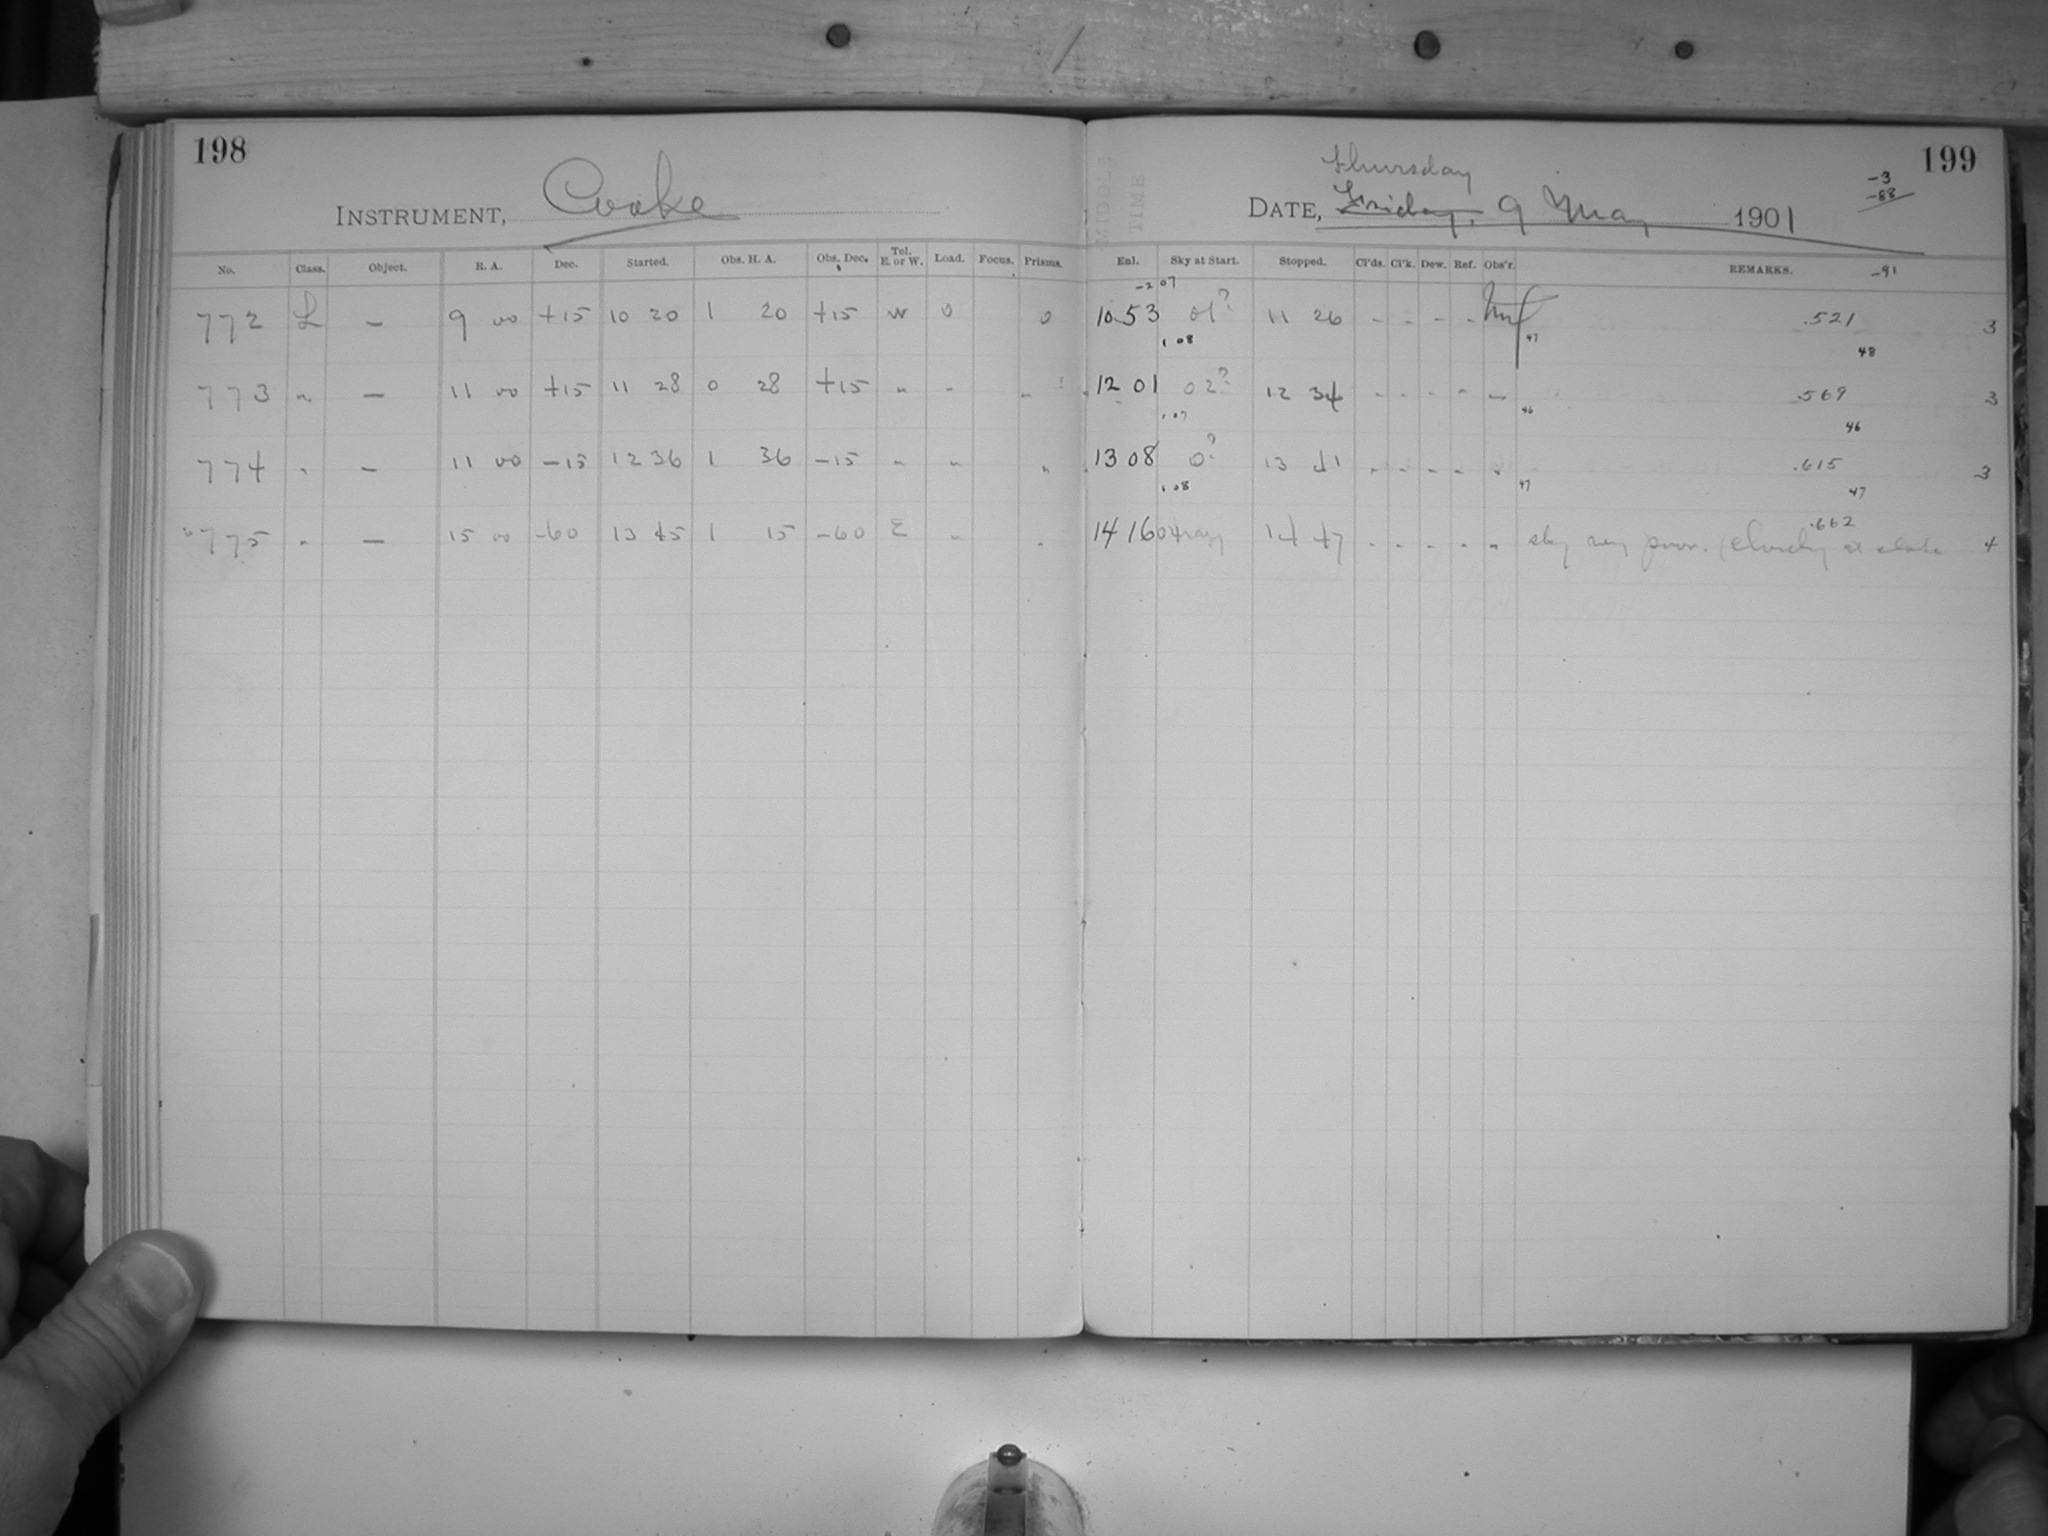 198
INSTRUMENT, Cooke
No. Class. Object. R. A. Dec. Started. Obs. H. A. Obs. Dec. Tel. E. or W. Load. Focus. Prisms.
772 L — 9 00 +15 10 20 1 20 +15 W 0 0
773 " — 11 00 +15 11 28 0 28 +15 " " "
774 " — 11 00 −15 12 36 1 36 −15 " " "
775 " — 15 00 -60 13 45 1 15 −60 E " "
199
Thursday
DATE, Friday, 9 May 1901
−3
−88
−91
MIDDLE
TIME
Enl. Sky at Start. Stopped. Cl'ds. Cl'k. Dew. Ref. Obs'r. REMARKS.
−2 07
10 53 01? 11 26 - - - - .521 3
1 08 47 48
12 01 02? 12 34 - - - - " .569 3
1 07 46 46
13 08 0? 13 41 - - - - " .615 3
1 08 47 47
.662
14 16 14 47 - - - - " sky very poor. (Cloudy at 4